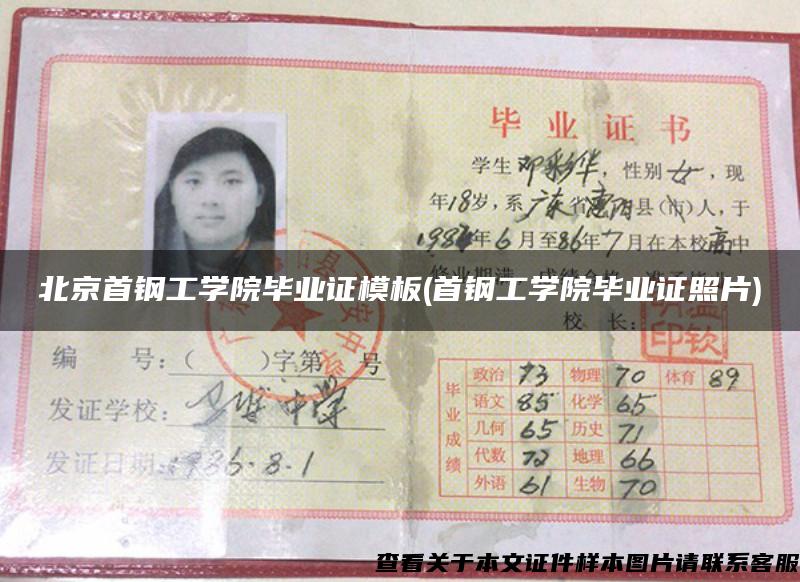 毕业证书
学生邓彩华，性别女，现
年18岁，系广东省惠阳县(市)人，于
1984年6月至86年7月在本校高中
北京首钢工学院毕业证模板(首钢工学院毕业证照片)
校 长：
编 号：( )字第 号
发证学校：
发证日期：1986.8.1
毕业成绩
政治 73 物理 70 体育 89
语文 85 化学 65
几何 65 历史 71
代数 72 地理 66
外语 61 生物 70
查看关于本文证件样本图片请联系客服